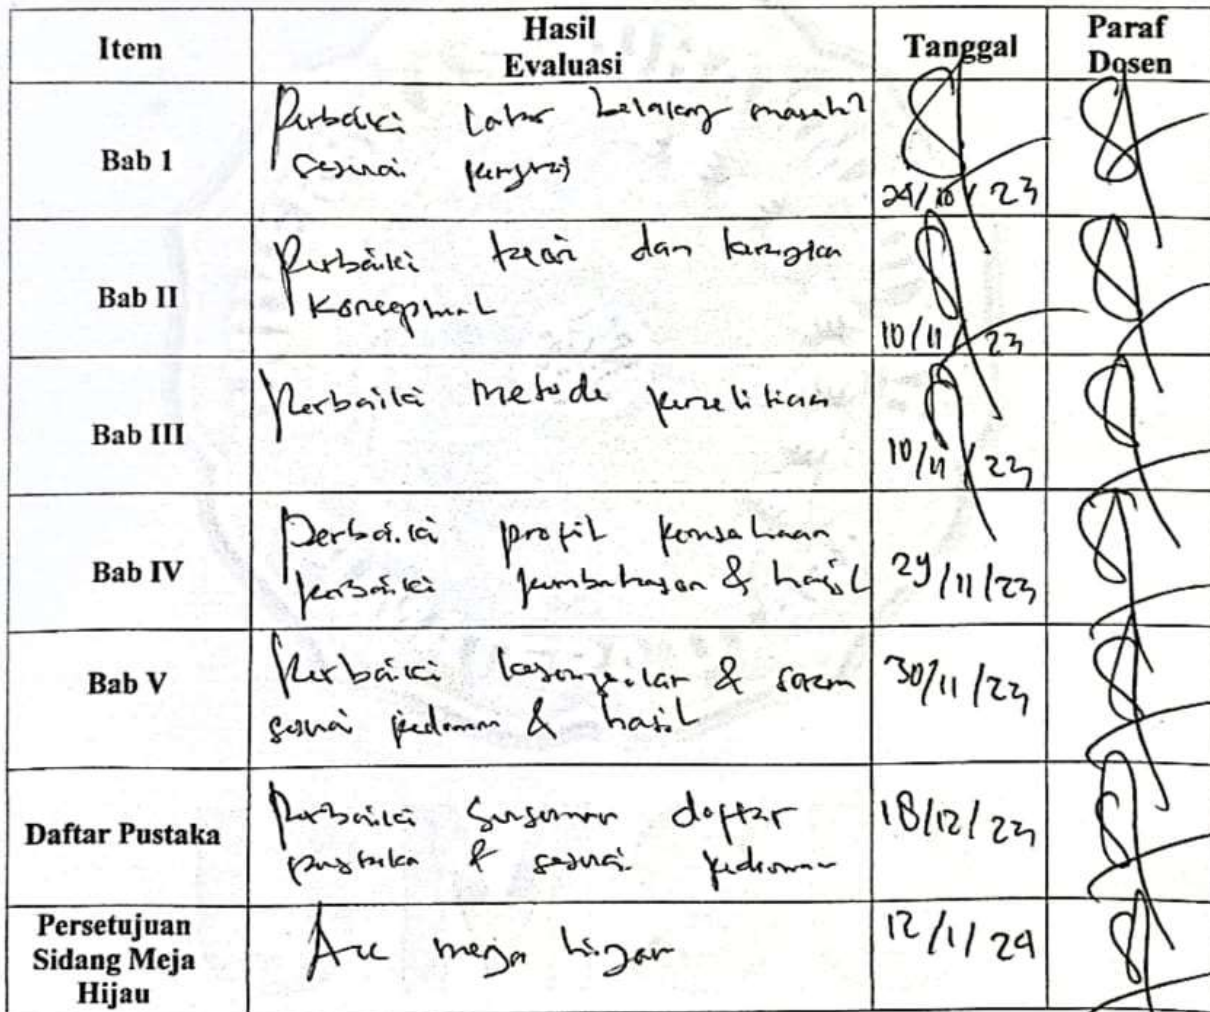 Item
Hasil
Evaluasi
Tanggal
Paraf
Dosen
Bab 1
Perbaiki latar belakang masalah
sesuai
Bab II
Perbaiki teori dan kerangka
Konseptual
10/11/23
Bab III
Perbaiki metode penelitian
10/11/23
Bab IV
Perbaiki profil perusahaan
perbaiki pembahasan & hasil
29/11/23
Bab V
Perbaiki kesimpulan & saran
sesuai pedoman & hasil
30/11/23
Daftar Pustaka
Perbaiki susunan daftar
pustaka & sesuai pedoman
18/12/23
Persetujuan
Sidang Meja
Hijau
Acc meja hijau
12/1/24